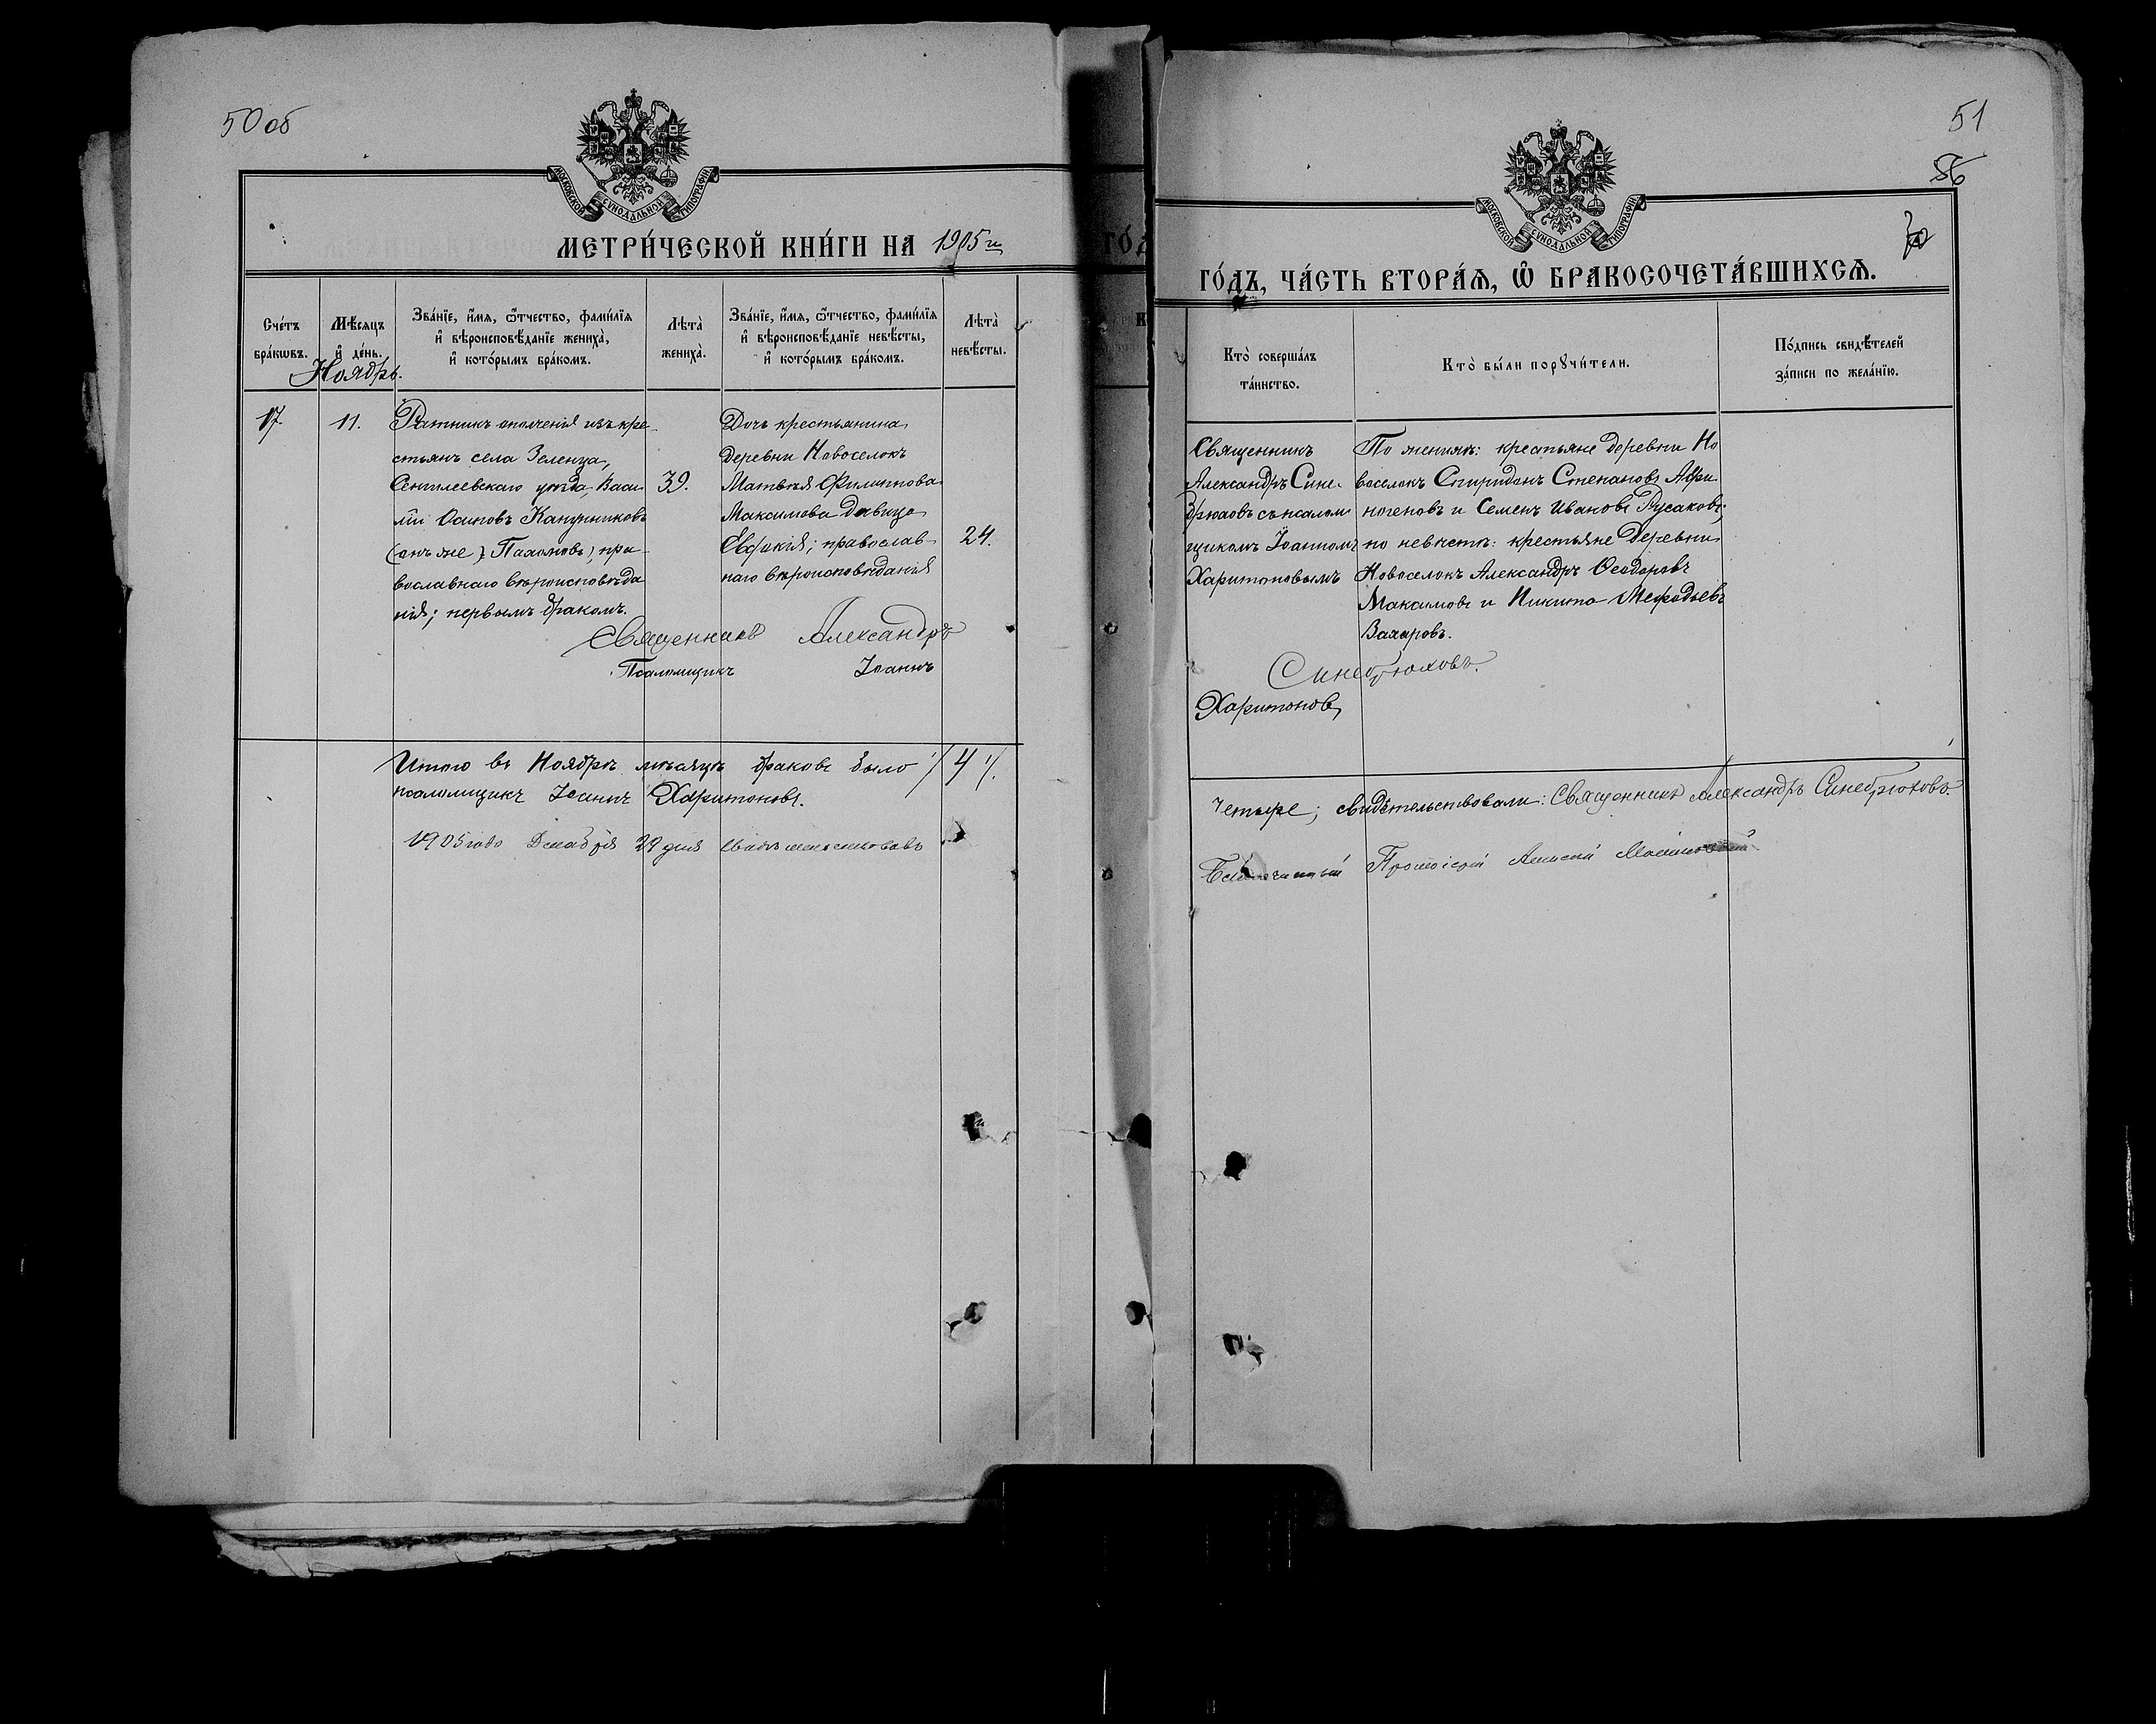 50 об
МОСКОВСКОЙ СѴНОДАЛЬНОЙ ТИПОГРАФІИ
МЕТРИ́ЧЕСКОЙ КНИ́ГИ НА 1905 г.
Сче́тъ бра́кѡвъ.
Мѣ́сяцъ и҆ де́нь.
Зва́нїе, и҆́мя, ѻ҆́тчество, фами́лїя и҆ вѣроисповѣ́данїе жениха̀, и҆ кото́рымъ бра́комъ.
Лѣта̀ жениха̀.
Зва́нїе, и҆́мя, ѻ҆́тчество, фами́лїя и҆ вѣроисповѣ́данїе невѣ́сты, и҆ кото́рымъ бра́комъ.
Лѣта̀ невѣ́сты.
Ноябрь.
17.
11.
Ратникъ ополченія изъ кре-
стьянъ села Зеленца,
Сенгилеевскаго уѣзда, Васи-
лій Осиповъ Канунниковъ
(онъ же) , пра-
вославнаго вѣроисповѣда
нія; первымъ бракомъ.
39.
Дочь крестьянина
деревни Новоселокъ
Матвѣя Филиппова
Максимова дѣвица
Евдокія; православ-
наго вѣроисповѣданія
24.
Священникъ Александръ
Псаломщикъ Іоаннъ
Итого въ Ноябрѣ мѣсяцѣ браковъ было /4/.
псаломщикъ Іоаннъ Харитоновъ.
1905 года Декабря 29 дня свидѣтельствовалъ
51
86
70
МОСКОВСКОЙ СѴНОДАЛЬНОЙ ТИПОГРАФІИ
ГО́ДЪ, ЧА́СТЬ ВТОРА́Я, Ѡ҆ БРАКОСОЧЕТА́ВШИХСЯ.
Кто̀ соверша́лъ та́инство.
Кто̀ бы́ли порꙋчи́тели.
По́дпись свидѣ́телей за́писи по жела́нїю.
Священникъ
Александръ Сине-
брюховъ съ псалом-
щикомъ Іоанномъ
Харитоновымъ
По женихѣ: крестьяне деревни Но
воселокъ Спиридонъ Степановъ Афи-
ногеновъ и Семенъ Ивановъ Русаковъ;
по невѣстѣ: крестьяне деревни
Новоселокъ Александръ Ѳеодоровъ
Максимовъ и Никита Меѳодіевъ
Захаровъ.
Синебрюховъ.
Харитоновъ
четыре; свидѣтельствовали: Священникъ Александръ Синебрюховъ.
Благочинный Протоіерей Алексій